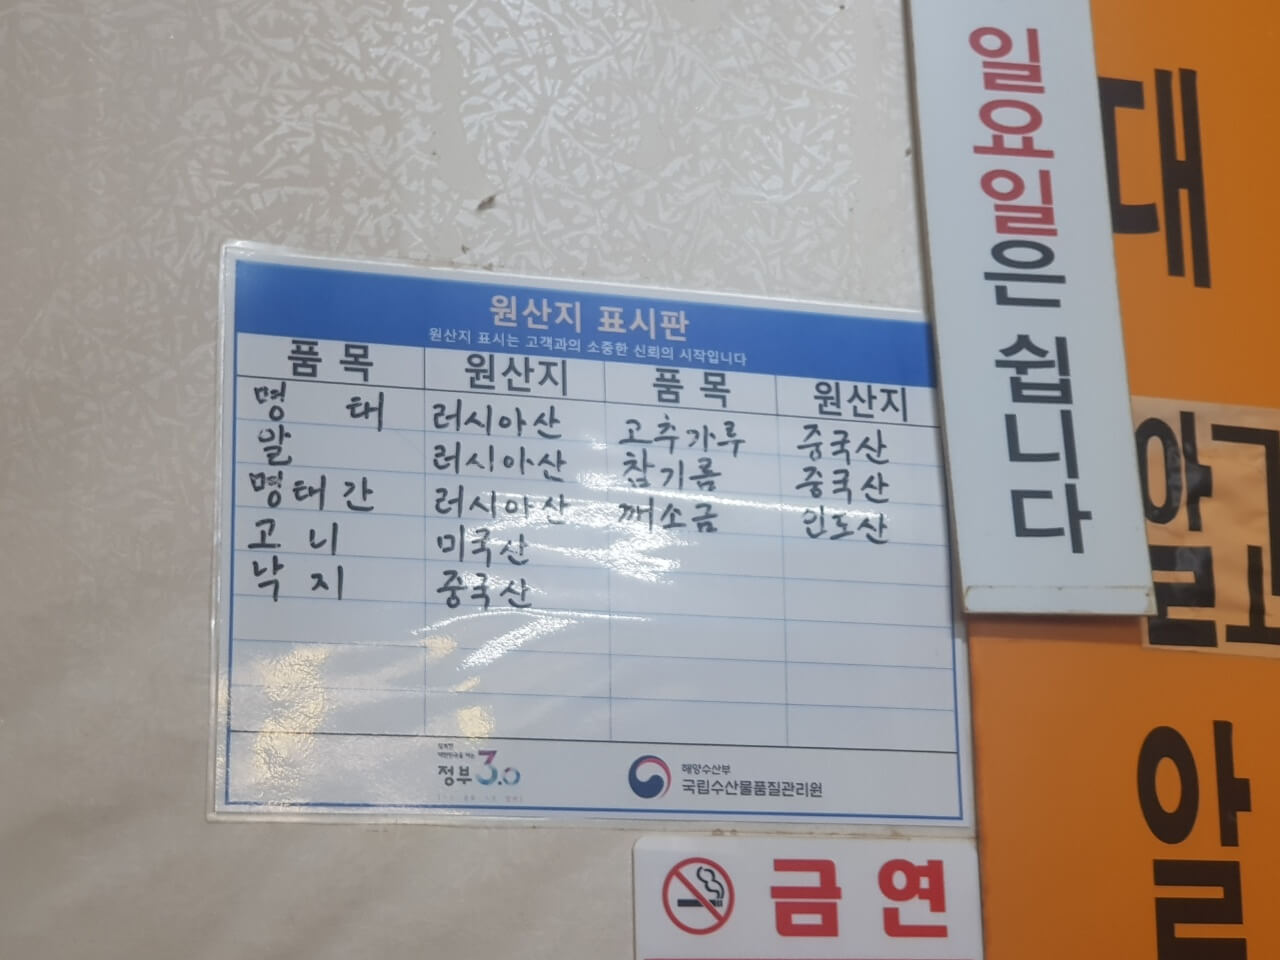 원산지 표시판
원산지 표시는 고객과의 소중한 신뢰의 시작입니다
품 목 원산지 품 목 원산지
명 태 러시아산 고추가루 중국산
알 러시아산 참기름 중국산
명태간 러시아산 깨소금 인도산
고 니 미국산
낙 지 중국산
정부3.0
해양수산부
국립수산물품질관리원
일요일은 쉽니다
금연
대
알
알